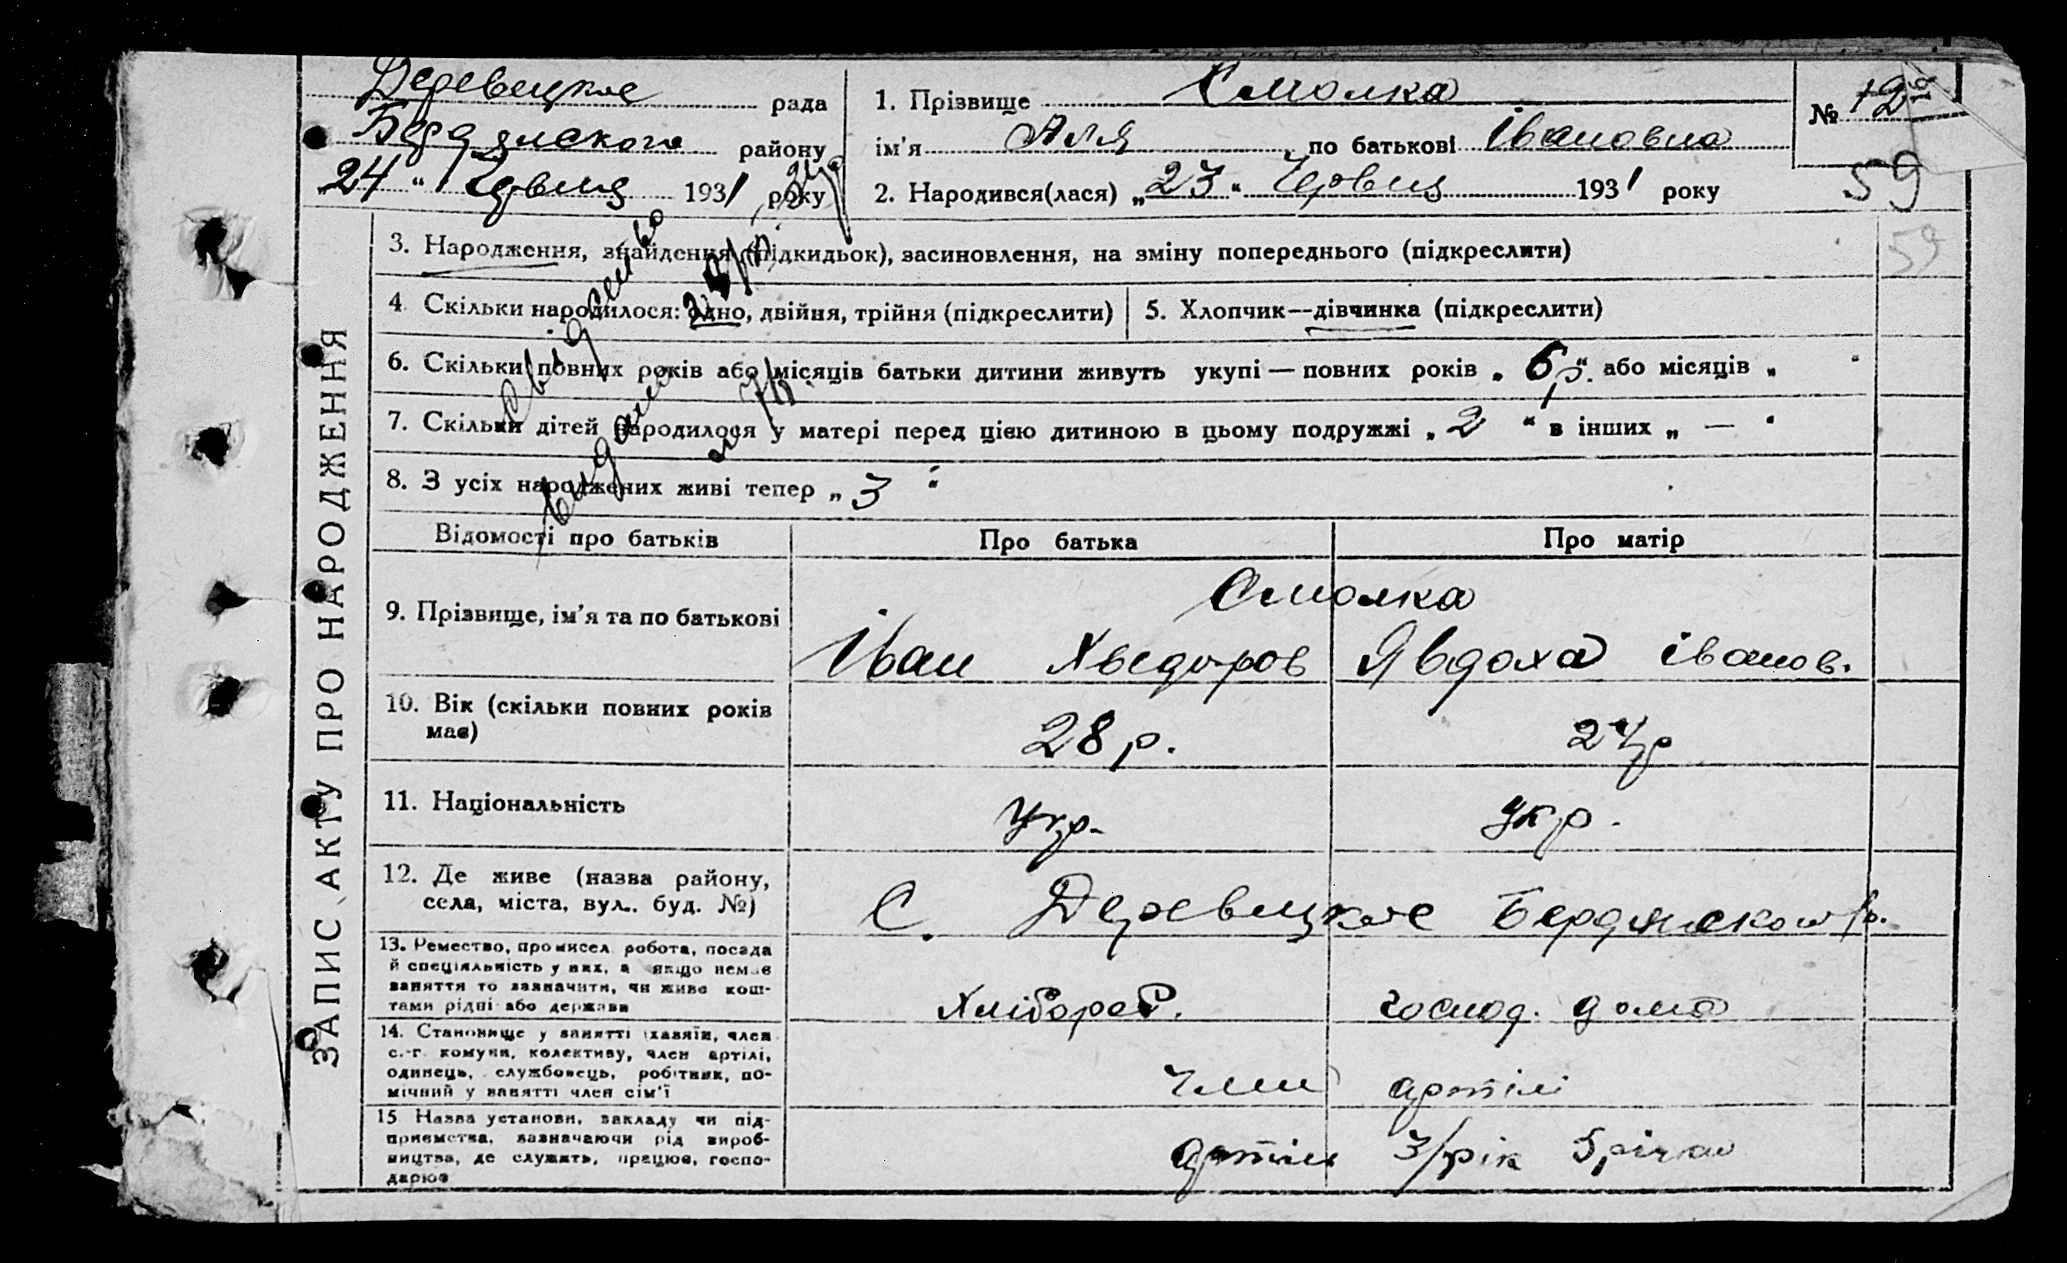 Деревецкое рада
Бердянского району
„24“ Червня 1931 року
1. Прізвище Смолка
ім'я Аля, по батькові Івановна
2. Народився(лася) „23“ Червня 1931 року
№ 12
59
59
ЗАПИС АКТУ ПРО НАРОДЖЕННЯ
3. Народження, знайдення (підкидьок), засиновлення, на зміну попереднього (підкреслити)
4. Скільки народилося: одно, двійня, трійня (підкреслити)
5. Хлопчик—дівчинка (підкреслити)
6. Скільки повних років або місяців батьки дитини живуть укупі — повних років „6 р.“ або місяців „ “
7. Скільки дітей народилося у матері перед цією дитиною в цьому подружжі „2“ в інших „—“
8. З усіх народжених живі тепер „3“
видано
Відомості про батьків
Про батька
Про матір
9. Прізвище, ім'я та по батькові
Смолка
Іван Хведоров
Явдоха Іванов.
10. Вік (скільки повних років
має)
28 р.
27 р
11. Національність
Укр.
укр.
12. Де живе (назва району,
села, міста, вул., буд. №)
С. Деревецкое Бердянского р.
13. Ремество, промисел, робота, посада
й спеціяльність у них, а якщо немає
заняття то зазначити, чи живе кош-
тами рідні або держави
Хлібороб.
господ. дома
14. Становище у занятті (хазяїн, член
с.-г. комуни, колективу, член артілі,
одинець, службовець, робітник, по-
мічний у занятті член сім'ї
член артілі
15 Назва установи, закладу чи під-
приємства, зазначаючи рід вироб-
ництва, де служить, працює, госпо-
дарює
артіль